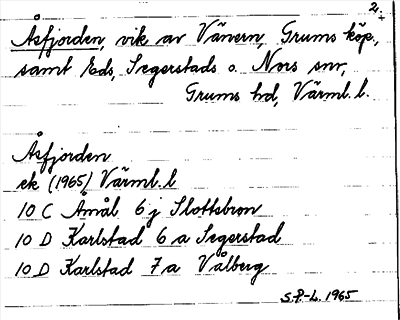 2.
Åsfjorden, vik av Vänern, Grums köp.,
samt Eds, Segerstads o. Nors snr,
Grums hd, Värml. l.
Åsfjorden
ek (1965) Värml. l
10 C Åmål 6 j Slottsbron
10 D Karlstad 6 a Segerstad
10 D Karlstad 7 a Vålberg
S.P-L. 1965